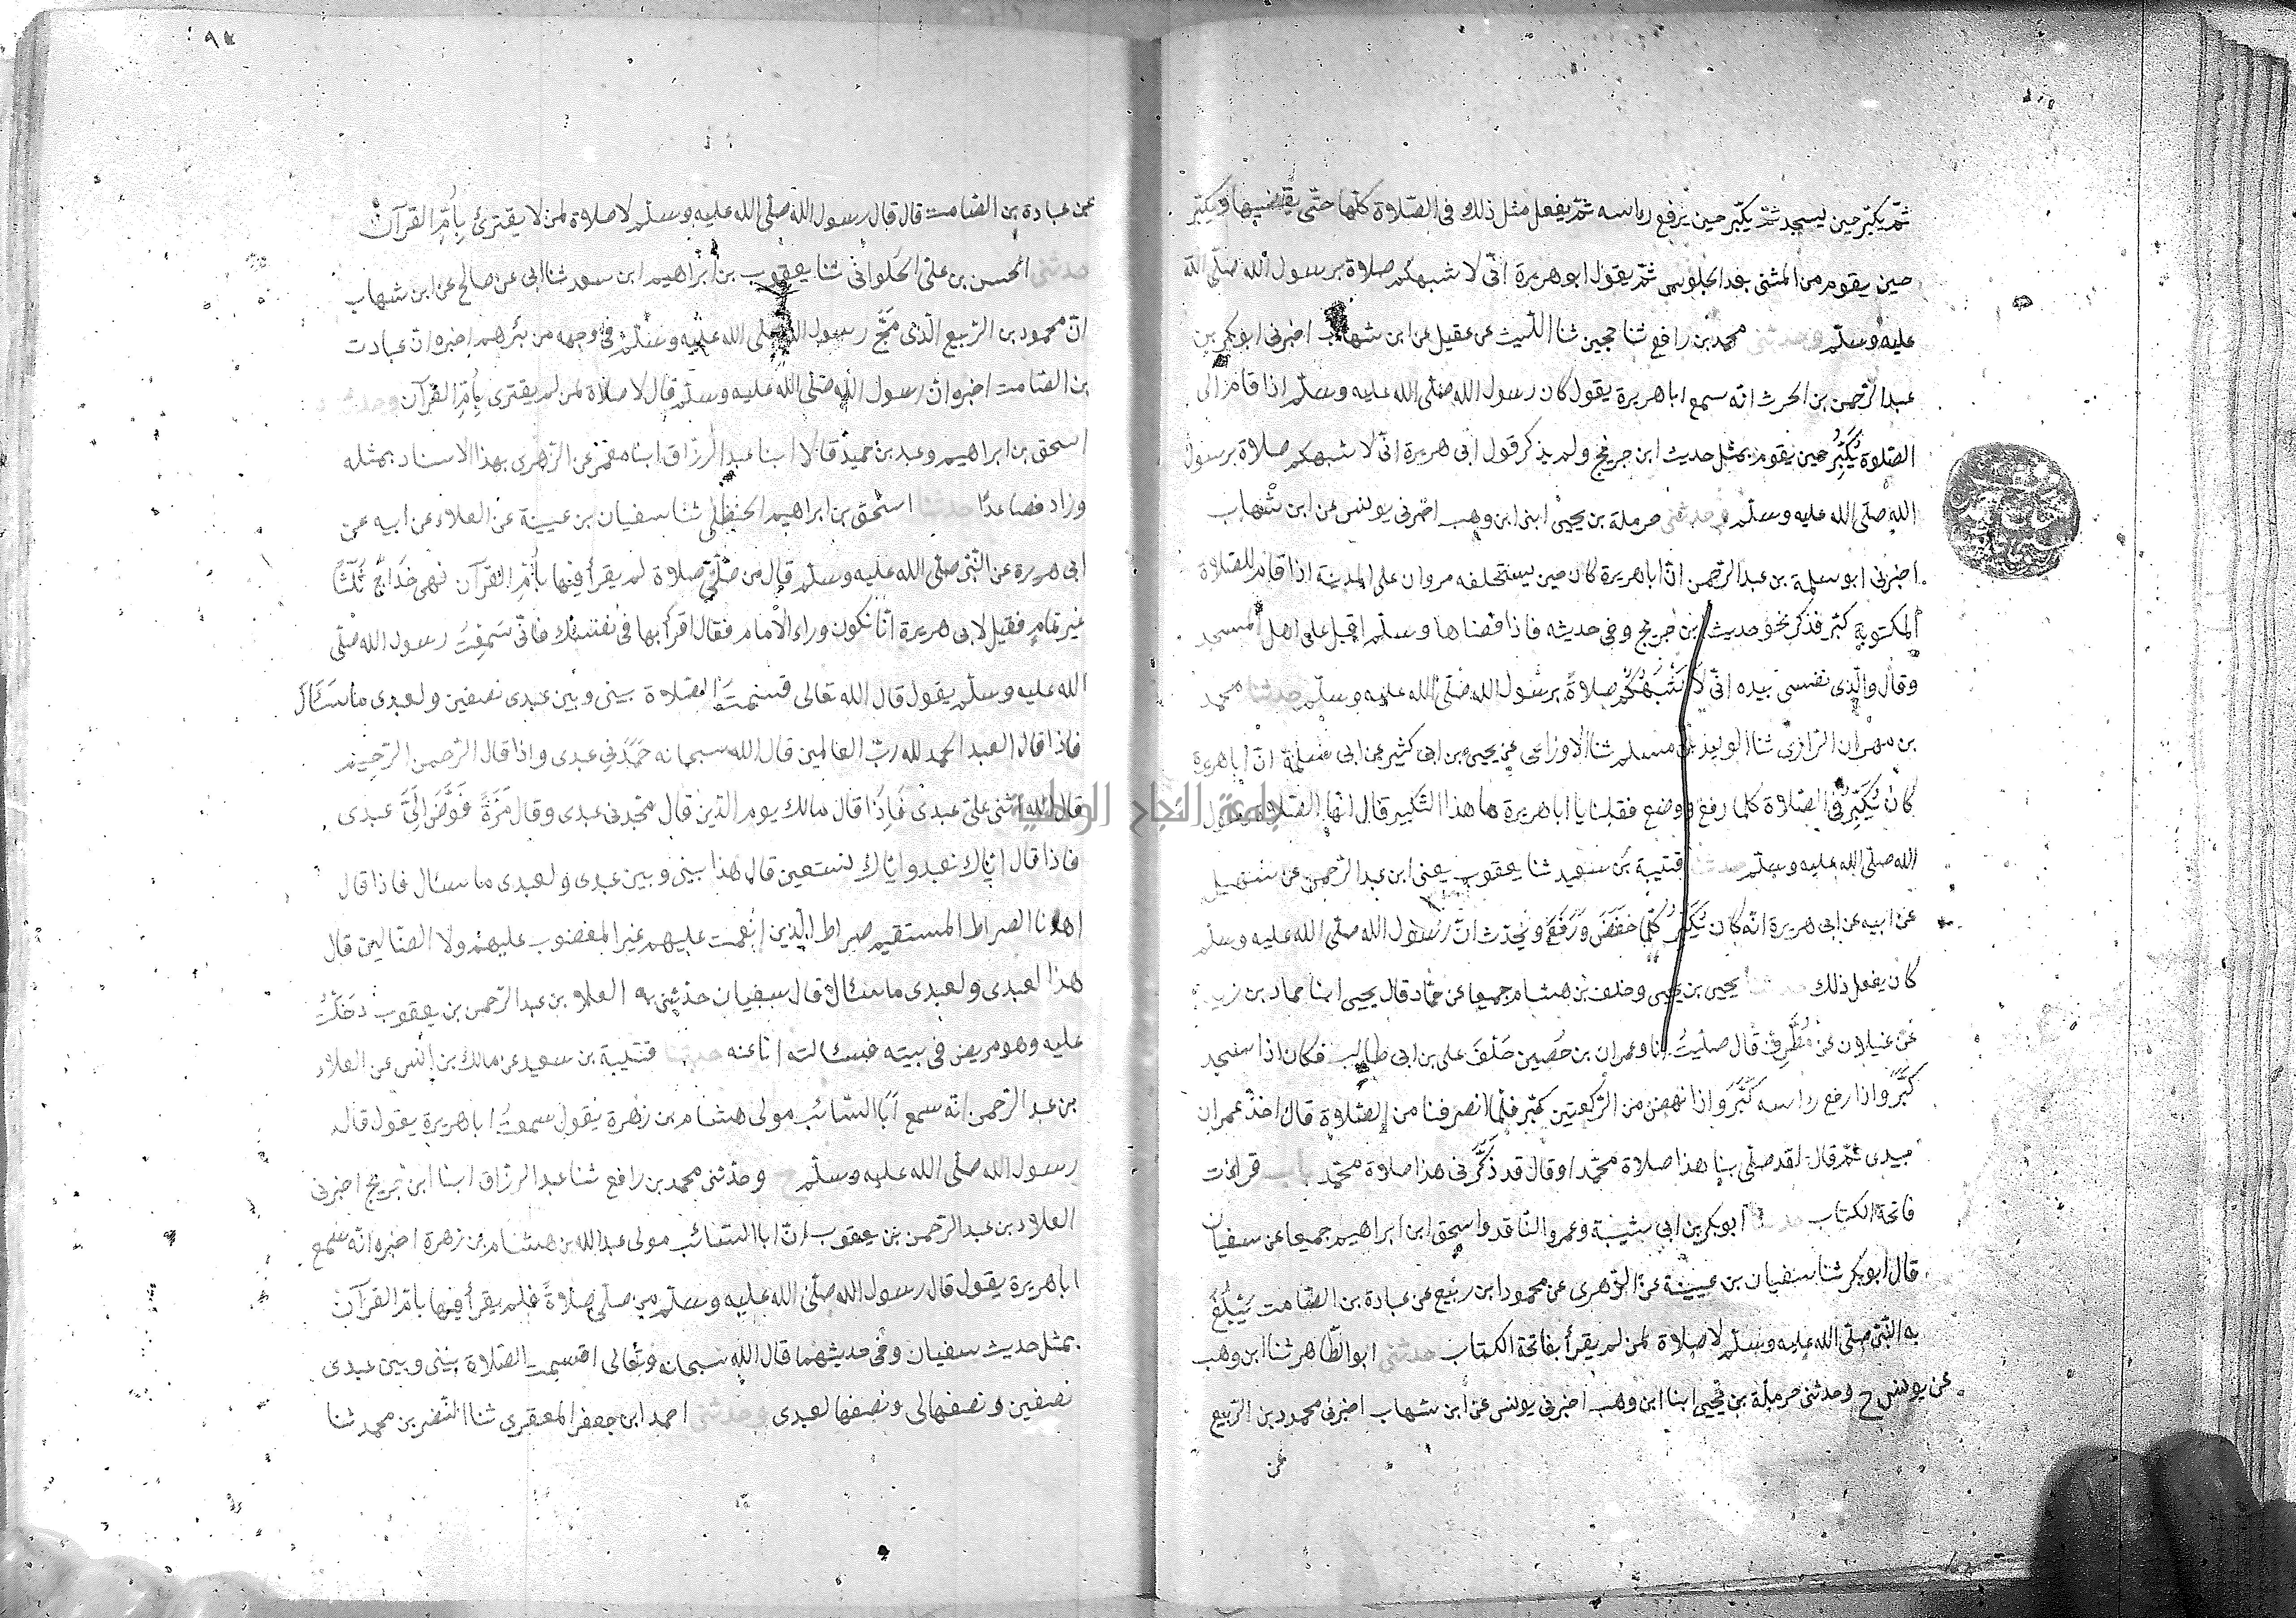 ثم يكبر حين يسجد ثم يكبر حين يرفع راسه ثم يفعل مثل ذلك فى الصلاة كلها حتى يقضيها ويكبر
حين يقوم من المثنى بعد الجلوس ثم يقول ابو هريرة انى لا شبهكم صلاة برسول الله صلى الله
عليه وسلم وحدثنى محمد بن رافع ثنا حجين ثنا الليث عن عقيل عن ابن شهاب اخبرنى ابوبكر بن
عبد الرحمن بن الحرث انه سمع ابا هريرة يقول كان رسول الله صلى الله عليه وسلم اذا قام الى
الصلوة يكبر حين يقوم بمثل حديث ابن جريج ولم يذكر قول ابى هريرة انى لا شبهكم صلاة برسول
الله صلى الله عليه وسلم وحدثنى حرملة بن يحيى ابنا ابن وهب اخبرنى يونس عن ابن شهاب
اخبرنى ابو سلمة بن عبد الرحمن ان ابا هريرة كان حين يستخلفه مروان على المدينة اذا قام للصلاة
المكتوبة كبر فذكر نحو حديث ابن جريج وفى حديثه فاذا قضاها وسلم اقبل على اهل المسجد
وقال والذى نفسى بيده انى لا شبهكم صلاة برسول الله صلى الله عليه وسلم حدثنا محمد
بن مهران الرازى ثنا الوليد بن مسلم ثنا الاوزاعى عن يحيى بن ابى كثير عن ابى سلمة ان ابا هريرة
كان يكبر فى الصلاة كلما رفع ووضع فقلنا يا ابا هريرة ما هذا التكبير قال انها لصلاة رسول
الله صلى الله عليه وسلم حدثنا قتيبة بن سعيد ثنا يعقوب يعنى ابن عبد الرحمن عن سهيل
عن ابيه عن ابى هريرة انه كان يكبر كلما خفض ورفع ويحدث ان رسول الله صلى الله عليه وسلم
كان يفعل ذلك حدثنا يحيى بن يحيى وخلف بن هشام جميعا عن حماد قال يحيى ابنا حماد بن زيد
عن غيلان عن مطرف قال صليت انا وعمران بن حصين خلف على بن ابى طالب فكان اذا سجد
كبر واذا رفع راسه كبر واذا نهض من الركعتين كبر فلما انصرفنا من الصلاة قال اخذ عمران
بيدى ثم قال لقد صلى بنا هذا صلاة محمد او قال قد ذكرنى هذا صلاة محمد باب قراءت
فاتحة الكتاب حدثنا ابوبكر بن ابى شيبة وعمرو الناقد واسحق ابن ابراهيم جميعا عن سفيان
قال ابوبكر ثنا سفيان بن عيينة عن الزهرى عن محمود ابن ربيع عن عبادة بن الصامت يبلغ
به النبى صلى الله عليه وسلم لا صلاة لمن لم يقرأ بفاتحة الكتاب حدثنى ابو الطاهر ثنا ابن وهب
عن يونس ح وحدثنى حرملة بن يحيى ابنا ابن وهب اخبرنى يونس عن ابن شهاب اخبرنى محمود بن الربيع
عن
عن عبادة بن الصامت قال قال رسول الله صلى الله عليه وسلم لا صلاة لمن لا يقترئ بأم القرآن
حدثنى الحسن بن على الحلوانى ثنا يعقوب بن ابراهيم ابن سعد ثنا ابى عن صالح عن ابن شهاب
ان محمود بن الربيع الذى مج رسول الله صلى الله عليه وسلم فى وجهه من بئرهم اخبره ان عبادت
بن الصامت اخبره ان رسول الله صلى الله عليه وسلم قال لا صلاة لمن لم يقترى بأم القرآن وحدثنا
اسحق بن ابراهيم وعبد بن حميد قالا ابنا عبد الرزاق ابنا معمر عن الزهرى بهذا الاسناد بمثله
وزاد فصاعدا حدثنا اسحق بن ابراهيم الحنظلى ثنا سفيان بن عيينة عن العلاء عن ابيه عن
ابى هريرة عن النبى صلى الله عليه وسلم قال من صلى صلاة لم يقرأ فيها بأم القرآن فهى خداج ثلثا
غير تمام فقيل لابى هريرة انا نكون وراء الامام فقال اقرأ بها فى نفسك فانى سمعت رسول الله صلى
الله عليه وسلم يقول قال الله تعالى قسمت الصلاة بينى وبين عبدى نصفين ولعبدى ما سئال
فاذا قال العبد الحمد لله رب العالمين قال الله سبحانه حمدنى عبدى واذا قال الرحمن الرحيم
قال الله اثنى على عبدى فاذا قال مالك يوم الدين قال مجدنى عبدى وقال مرة فوض الى عبدى
فاذا قال اياك نعبد واياك نستعين قال هذا بينى وبين عبدى ولعبدى ما سئال فاذا قال
اهدنا الصراط المستقيم صراط الذين انعمت عليهم غير المغضوب عليهم ولا الضالين قال
هذا لعبدى ولعبدى ما سئال قال سفيان حدثنى به العلاء بن عبد الرحمن بن يعقوب دخلت
عليه وهو مريض فى بيته فسئالته انا عنه حدثنا قتيبة بن سعيد عن مالك بن أنس عن العلاء
بن عبد الرحمن انه سمع أبا السائب مولى هشام بن زهرة يقول سمعت ابا هريرة يقول قال
رسول الله صلى الله عليه وسلم ح وحدثنى محمد بن رافع ثنا عبد الرزاق ابنا ابن جريج اخبرنى
العلاء بن عبد الرحمن بن يعقوب ان ابا السائب مولى عبد الله بن هشام بن زهرة اخبره انه سمع
ابا هريرة يقول قال رسول الله صلى الله عليه وسلم من صلى صلاة فلم يقرأ فيها بام القرآن
بمثل حديث سفيان وفى حديثهما قال الله سبحانه وتعالى اقسمت الصلاة بينى وبين عبدى
نصفين ونصفها لى ونصفها لعبدى وحدثنى احمد ابن جعفر المعقرى ثنا النضر بن محمد ثنا
جامعة النجاح الوطنية